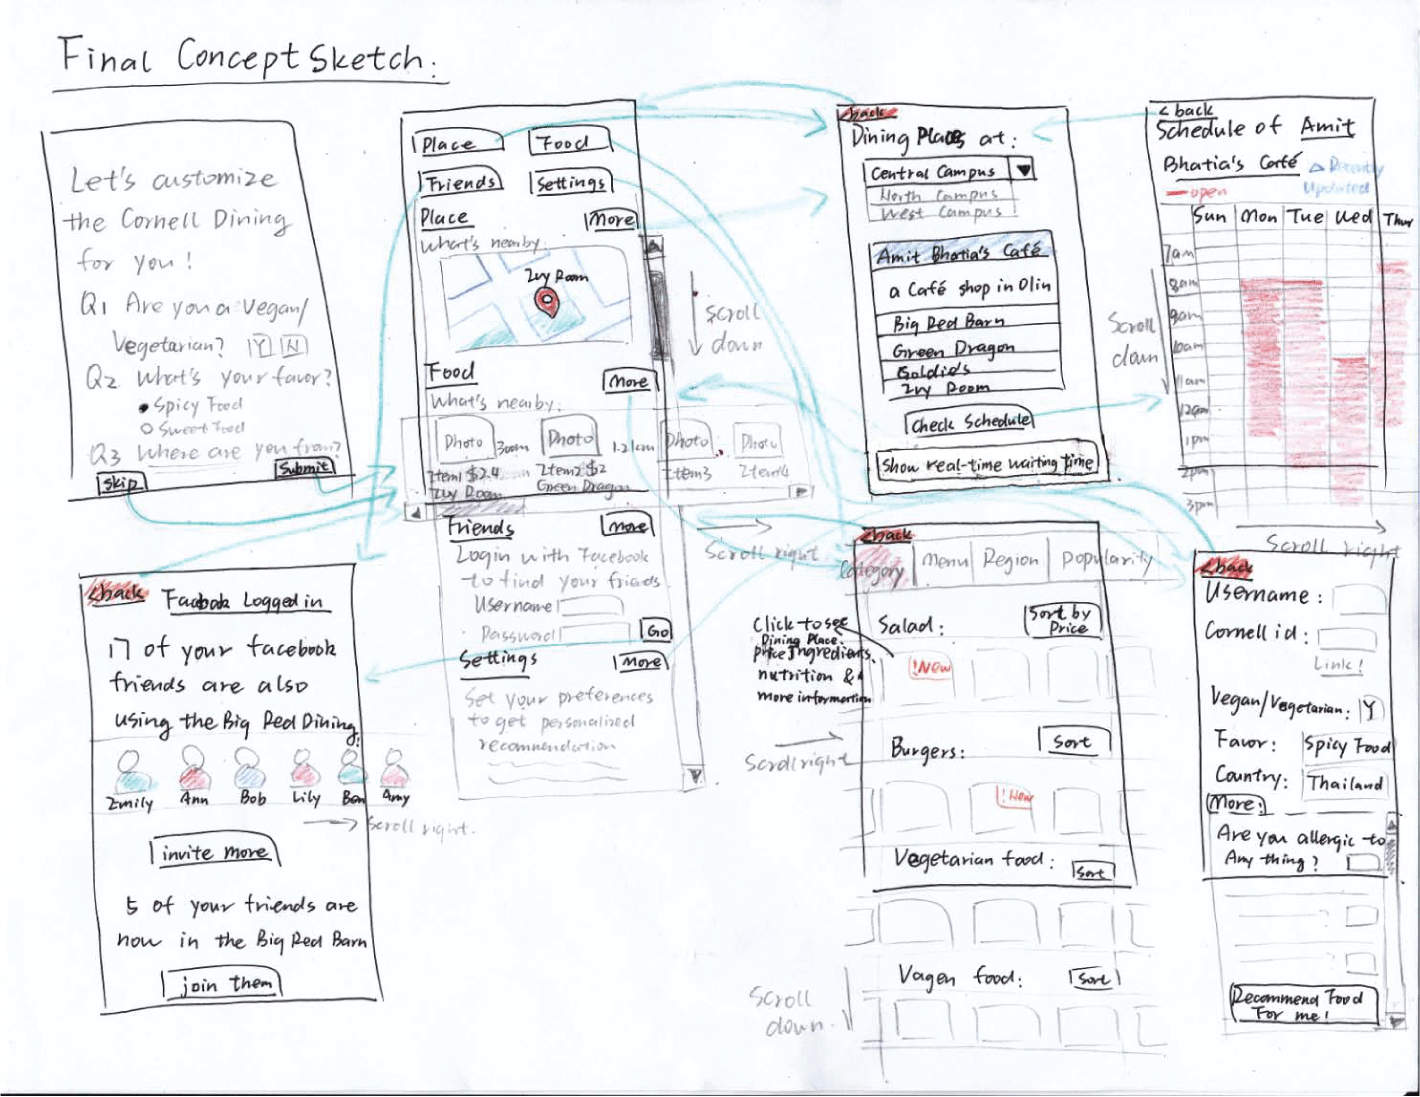 Final Concept Sketch:
Let's customize
the Cornell Dining
for you!
Q1 Are you a Vegan/
Vegetarian? Y N
Q2 What's your favor?
Spicy Food
Sweet Food
Q3 Where are you from?
Skip
Submit
Place
Food
Friends
Settings
Place
More
What's nearby:
Ivy Room
Scroll
down
Food
More
What's nearby:
Photo
300m
Photo
1.21km
Photo
Photo
Item1 $2.4
Item2 $2
Item3
Item4
Ivy Room
Green Dragon
Friends
More
Scroll right
Login with Facebook
to find your friends
Username
Password
Go
Settings
More
Set your preferences
to get personalized
recommendation
<back
Dining Places at:
Central Campus
North Campus
West Campus
Amit Bhatia's Café
a Café shop in Olin
Big Red Barn
Green Dragon
Goldie's
Ivy Room
Check Schedule
Show real-time waiting time
< back
Schedule of Amit
Bhatia's Café
Recently
Updated
open
Sun Mon Tue Wed Thur
7am
8am
9am
10am
11am
12am
1pm
2pm
3pm
Scroll
down
Scroll right
<back
Facebook Logged in
17 of your facebook
friends are also
using the Big Red Dining!
Emily Ann Bob Lily Ben Amy
Scroll right.
invite more
5 of your friends are
now in the Big Red Barn
join them
<back
Category Menu Region Popularity
Click to see
Dining Place,
price Ingredients,
nutrition &
more information
Salad:
Sort by
Price
!New
Scroll right
Burgers:
Sort
!New
Vegetarian food:
Sort
Vagen food:
Sort
Scroll
down.
<back
Username:
Cornell id:
Link!
Vegan/Vegetarian: Y
Favor: Spicy Food
Country: Thailand
More:
Are you allergic to
Any thing?
Recommend Food
For me!